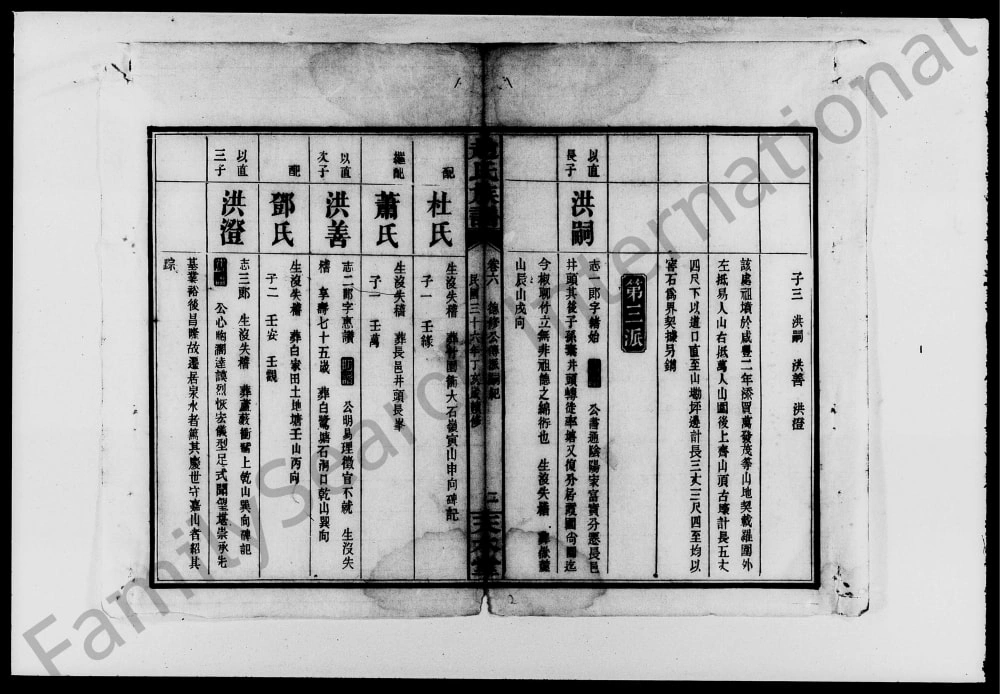 子三 洪嗣 洪善 洪澄
該處祖墳於咸豐二年添買萬發茂等山地契載羅圍外
左抵易人山右抵萬人山圍後上齊山頂古壕計長五丈
四尺下以道口直至山塝坪邊計長三丈三尺四至均以
窖石為界契據另錄
第三派
以直長子
洪嗣
志一郎字緒始 公壽通陰陽家富實分遷長邑
井頭其後子孫 井頭轉徙 塘又復外居 國尚 迄
今椒聊竹立無非祖德之綿衍也 生沒失稽 葬
山辰山戌向
趙氏族譜
卷六 德修公傳派嗣記
民國三十六年丁亥歲續修
二
配
杜氏
生沒失稽 葬 大石嶺寅山申向碑記
子一 壬祿
繼配
蕭氏
生沒失稽 葬長邑井頭長峯
子一 壬萬
以直次子
洪善
志二郎字惠讚 公明易理徵官不就 生沒失
稽 享壽七十五歲 葬白鷺塘石洞口乾山巽向
配
鄧氏
生沒失稽 葬白家田土地塘壬山丙向
子二 壬安 壬觀
以直三子
洪澄
志三郎 生沒失稽 葬蘆 衝 上乾山巽向碑記
公心 濶達謨烈恢宏儀型足式聞望堪崇承先
基業裕後昌隆故遷居泉水者篤其慶世守嘉山者紹其
踪
2